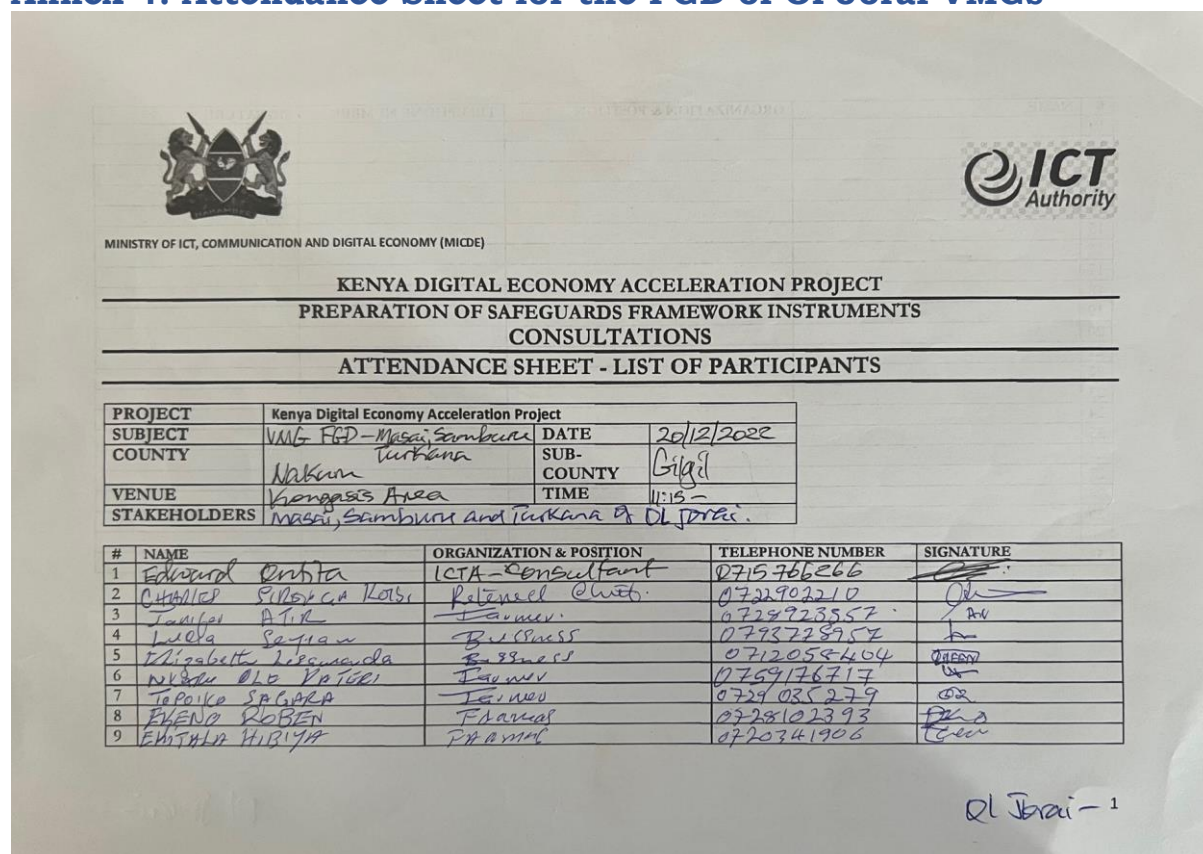 Annex 4: Attendance Sheet for the FGD of Ol Jorai VMGs
HARAMBEE
ICT
Authority
MINISTRY OF ICT, COMMUNICATION AND DIGITAL ECONOMY (MICDE)
KENYA DIGITAL ECONOMY ACCELERATION PROJECT
PREPARATION OF SAFEGUARDS FRAMEWORK INSTRUMENTS
CONSULTATIONS
ATTENDANCE SHEET - LIST OF PARTICIPANTS
PROJECT Kenya Digital Economy Acceleration Project
SUBJECT VMG FGD-Masai, Samburu Turkana DATE 20/12/2022
COUNTY Nakuru SUB-COUNTY Gilgil
VENUE Kongasis Area TIME 11:15 -
STAKEHOLDERS Masai, Samburu and Turkana of OL Jorai.
# NAME ORGANIZATION & POSITION TELEPHONE NUMBER SIGNATURE
1 Edward ICTA - Consultant 0715766266
2 CHARLES Chief. 0722902210
3 Farmer. 0728923557
4 Bussiness 0793728957
5 Elizabeth Bussness 0712058404
6 OLE Farmer 0759176717
7 TOPOIKO SAGARA Farmer 0729 035279
8 EKENO ROBEN 0728102393
9 0720341906
Ol Jorai - 1